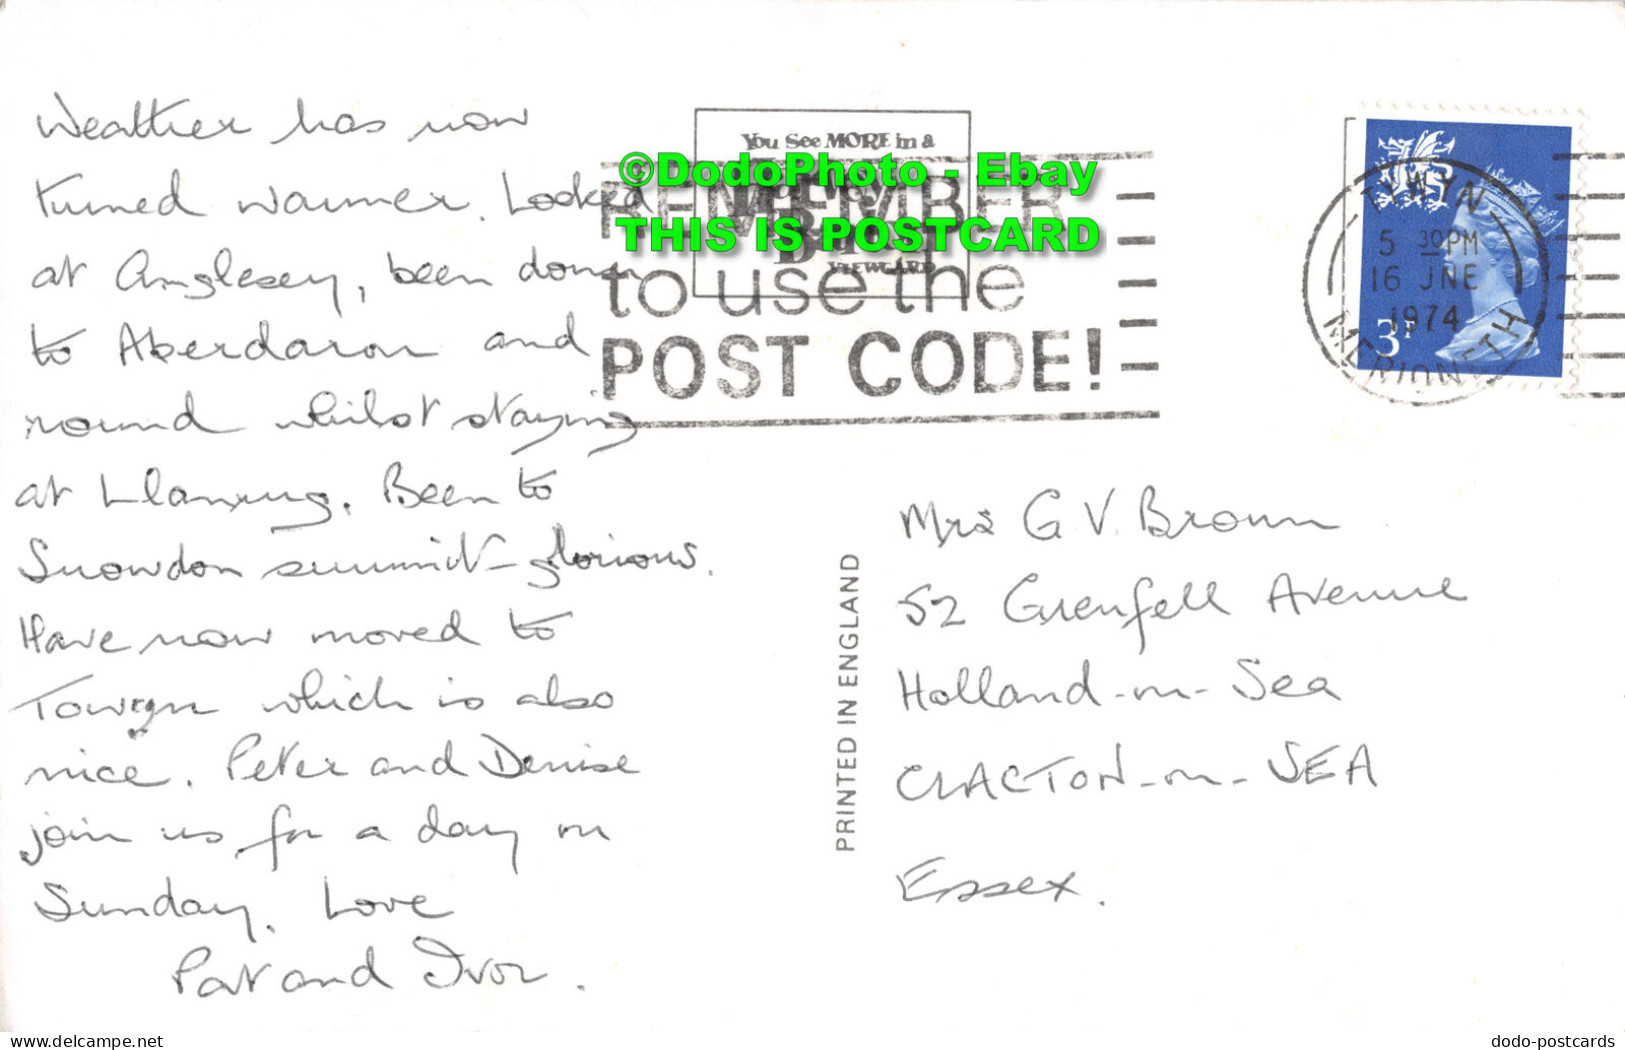 Weather has now
turned warmer. Looked
at Anglesey, been down
to Aberdaron and
round whilst staying
at Llanrug. Been to
Snowdon summit - glorious.
Have now moved to
Towyn which is also
nice. Peter and Denise
join us for a day on
Sunday. Love
Pat and Ivor.
You See MORE in a
VIEWCARD
©DodoPhoto - Ebay
THIS IS POSTCARD
REMEMBER
to use the
POST CODE!
TYWYN
5 30PM
16 JNE
1974
MERIONETH
3P
PRINTED IN ENGLAND
Mrs G.V. Brown
52 Grenfell Avenue
Holland-on-Sea
CLACTON-on-SEA
Essex.
delcampe.net
dodo-postcards